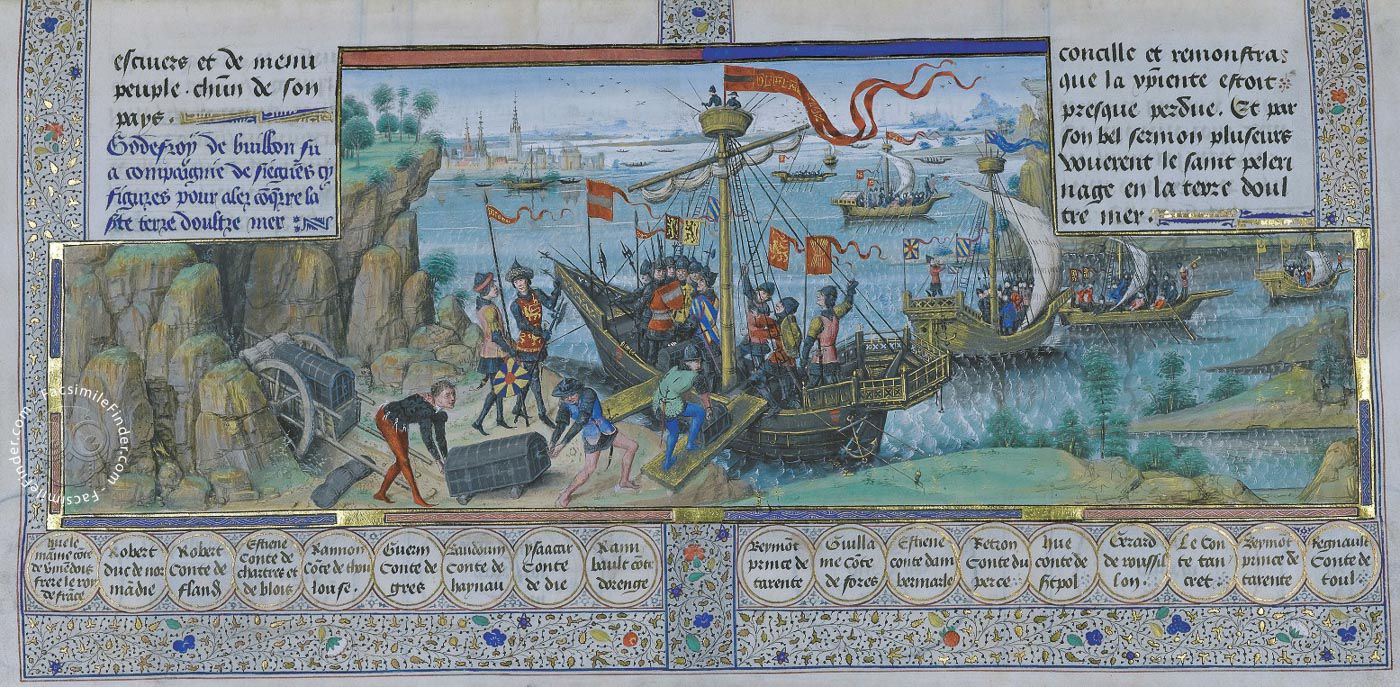 estuiers et de menu
peuple chun de son
pays.
Godefroy de buillon fu
a compaignie de
figures pour aler coqrre la
ste terre doultre mer
concille et remonstra
que la xpiente estoit
presque perdue. Et par
son bel sermon pluseurs
vouerent le saint peleri
nage en la terre doul
tre mer.
Hue le
maine cote
de vmedois
frere le roy
de frace
Robert
duc de nor
madie
Robert
Conte de
fland
Estiene
Conte de
chartres et
de blois
Raimon
Cote de thou
louse.
Guerin
Conte de
gres
Baudouin
Conte de
haynau
ysaacar
Conte
de die
Raim
bault cote
dorenge
Beymot
prince de
tarente
Guilla
me Cote
de fores
Estiene
conte dam
bermarle
Retron
Conte du
perce
hue
conte de
st pol
Gerard
de roussi
lon.
Le Con
te tan
cret.
Beymot
prince de
tarente
Regnault
Conte de
toul
FacsimileFinder.com
FacsimileFinder.com